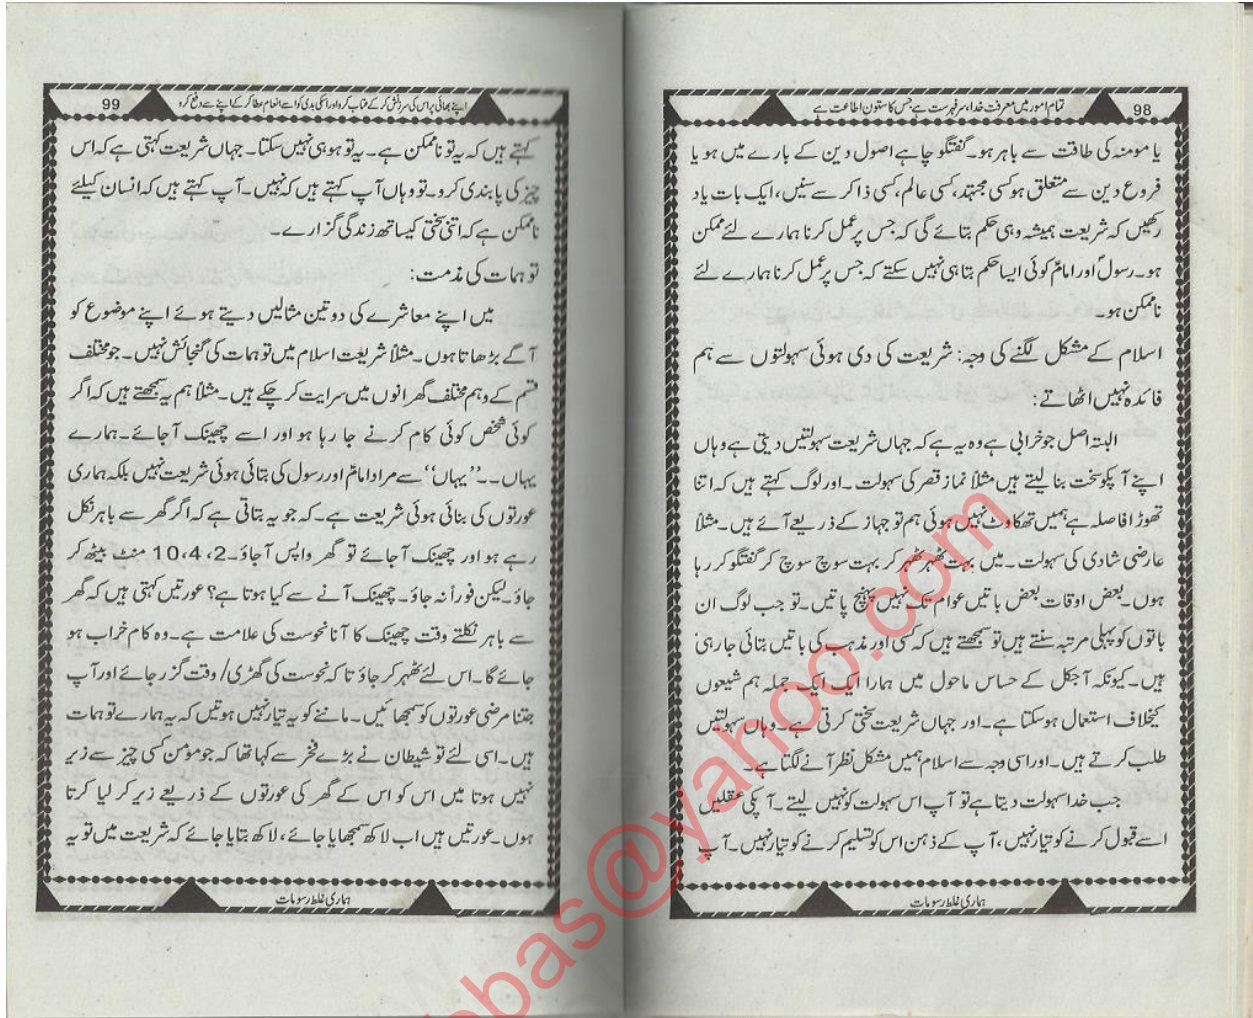 98
تمام امور میں معرفت خدا، سر فہرست ہے جس کا ستون اطاعت ہے
یا مومنہ کی طاقت سے باہر ہو۔ گفتگو چاہے اصول دین کے بارے میں ہو یا
فروع دین سے متعلق ہو کسی مجتہد، کسی عالم، کسی ذاکر سے سنیں، ایک بات یاد
رکھیں کہ شریعت ہمیشہ وہی حکم بتائے گی کہ جس پر عمل کرنا ہمارے لئے ممکن
ہو۔ رسولؐ اور امامؑ کوئی ایسا حکم بتا ہی نہیں سکتے کہ جس پر عمل کرنا ہمارے لئے
ناممکن ہو۔
اسلام کے مشکل لگنے کی وجہ: شریعت کی دی ہوئی سہولتوں سے ہم
فائدہ نہیں اٹھاتے:
البتہ اصل جو خرابی ہے وہ یہ ہے کہ جہاں شریعت سہولتیں دیتی ہے وہاں
اپنے آپکو سخت بنا لیتے ہیں مثلاً نماز قصر کی سہولت۔ اور لوگ کہتے ہیں کہ اتنا
تھوڑا فاصلہ ہے ہمیں تھکاوٹ نہیں ہوئی ہم تو جہاز کے ذریعے آئے ہیں۔ مثلاً
عارضی شادی کی سہولت۔ میں بہت ٹھہر ٹھہر کر بہت سوچ سوچ کر گفتگو کر رہا
ہوں۔ بعض اوقات بعض باتیں عوام تک نہیں پہنچ پاتیں۔ تو جب لوگ ان
باتوں کو پہلی مرتبہ سنتے ہیں تو سمجھتے ہیں کہ کسی اور مذہب کی باتیں بتائی جا رہی
ہیں۔ کیونکہ آجکل کے حساس ماحول میں ہمارا ایک ایک جملہ ہم شیعوں
کیخلاف استعمال ہو سکتا ہے۔ اور جہاں شریعت سختی کرتی ہے۔ وہاں سہولتیں
طلب کرتے ہیں۔ اور اسی وجہ سے اسلام ہمیں مشکل نظر آنے لگتا ہے۔
جب خدا سہولت دیتا ہے تو آپ اس سہولت کو نہیں لیتے۔ آپکی عقلیں
اسے قبول کرنے کو تیار نہیں، آپ کے ذہن اس کو تسلیم کرنے کو تیار نہیں۔ آپ
ہماری غلط رسومات
99
اپنے بھائی پر اس کی سرزنش کر کے عتاب کرو اور اسکی بدی کو اسے انعام عطا کر کے اپنے سے دفع کرو
کہتے ہیں کہ یہ تو ناممکن ہے۔ یہ تو ہو ہی نہیں سکتا۔ جہاں شریعت کہتی ہے کہ اس
چیز کی پابندی کرو۔ تو وہاں آپ کہتے ہیں کہ نہیں۔ آپ کہتے ہیں کہ انسان کیلئے
ناممکن ہے کہ اتنی سختی کیساتھ زندگی گزارے۔
توہمات کی مذمت:
میں اپنے معاشرے کی دو تین مثالیں دیتے ہوئے اپنے موضوع کو
آگے بڑھاتا ہوں۔ مثلاً شریعت اسلام میں توہمات کی گنجائش نہیں۔ جو مختلف
قسم کے وہم مختلف گھرانوں میں سرایت کر چکے ہیں۔ مثلاً ہم یہ سمجھتے ہیں کہ اگر
کوئی شخص کوئی کام کرنے جا رہا ہو اور اسے چھینک آ جائے۔ ہمارے
یہاں۔۔”یہاں“ سے مراد امامؑ اور رسول کی بتائی ہوئی شریعت نہیں بلکہ ہماری
عورتوں کی بنائی ہوئی شریعت ہے۔ کہ جو یہ بتاتی ہے کہ اگر گھر سے باہر نکل
رہے ہو اور چھینک آ جائے تو گھر واپس آ جاؤ۔ 2، 4، 10 منٹ بیٹھ کر
جاؤ۔ لیکن فوراً نہ جاؤ۔ چھینک آنے سے کیا ہوتا ہے؟ عورتیں کہتی ہیں کہ گھر
سے باہر نکلتے وقت چھینک کا آنا نحوست کی علامت ہے۔ وہ کام خراب ہو
جائے گا۔ اس لئے ٹھہر کر جاؤ تا کہ نحوست کی گھڑی/ وقت گزر جائے اور آپ
جتنا مرضی عورتوں کو سمجھائیں۔ ماننے کو یہ تیار نہیں ہوتیں کہ یہ ہمارے توہمات
ہیں۔ اسی لئے تو شیطان نے بڑے فخر سے کہا تھا کہ جو مؤمن کسی چیز سے زیر
نہیں ہوتا میں اس کو اس کے گھر کی عورتوں کے ذریعے زیر کر لیا کرتا
ہوں۔ عورتیں ہیں اب لاکھ سمجھایا جائے، لاکھ بتایا جائے کہ شریعت میں تو یہ
ہماری غلط رسومات
bas@yahoo.com